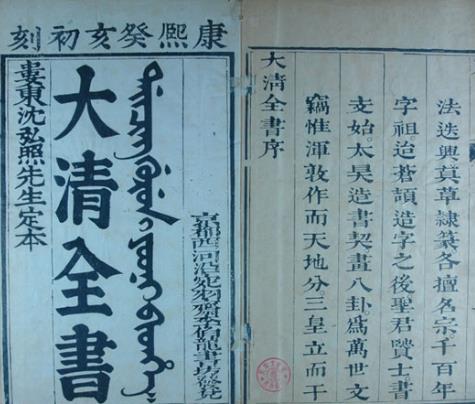 康熙癸亥初刻
婁東沈弘照先生定本
大清全書
ᡩᠠᡳᠴᡳᠩ ᡤᡠᡵᡠᠨ ᡳ ᠶᠣᠣᠨᡳ ᠪᡳᡨᡥᡝ
京都西河沿宛羽齋李伯龍書房發兌
大清全書序
竊惟渾敦作而天地分。三皇立而干
支始。太昊造書契畫八卦爲萬世文
字祖。迨蒼頡造字之後聖君賢士書
法迭興真草隸篆各擅名宗。千百年